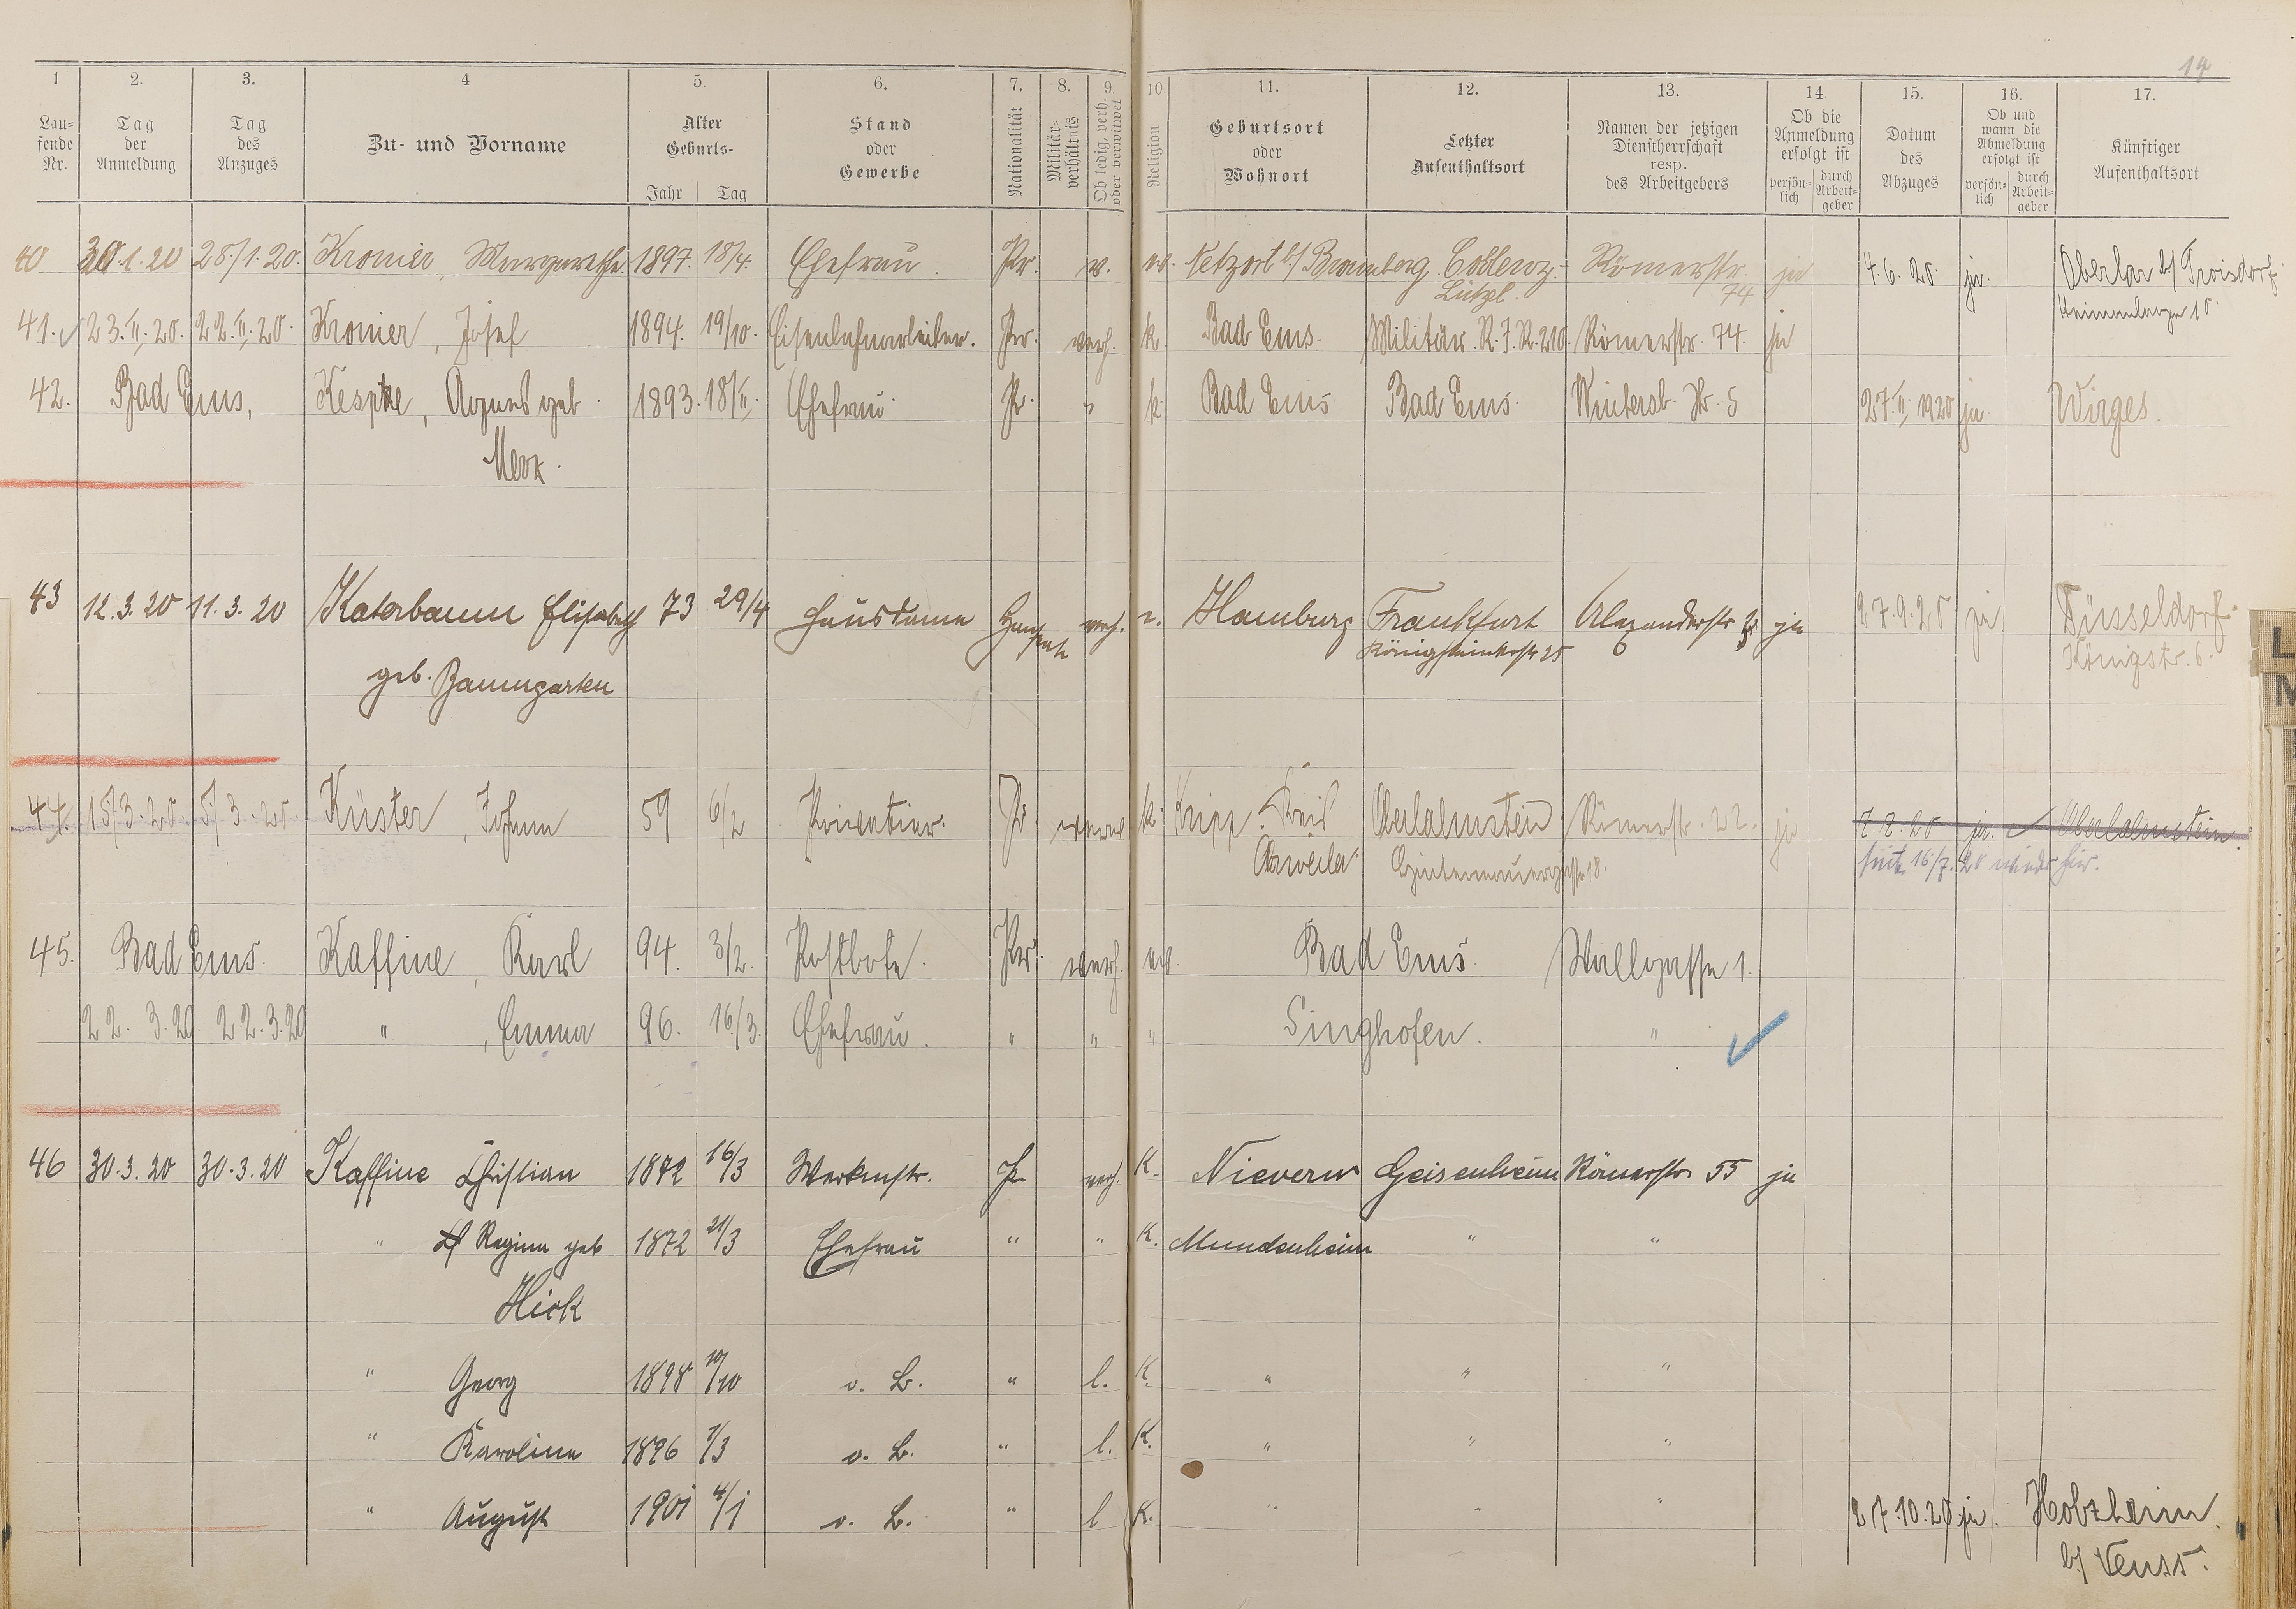 14
1 2. 3. 4 5. 6. 7. 8. 9. 10 11. 12. 13. 14. 15. 16. 17.
Lau-
fende
Nr.
Tag
der
Anmeldung
Tag
des
Anzuges
Zu- und Vorname
Alter
Geburts-
Jahr Tag
Stand
oder
Gewerbe
Nationalität
Militär-
verhältnis
Ob ledig, verh.
oder verwitwet
Religion
Geburtsort
oder
Wohnort
Letzter
Aufenthaltsort
Namen der jetzigen
Dienstherrschaft
resp.
des Arbeitgebers
Ob die
Anmeldung
erfolgt ist
persön-
lich
durch
Arbeit-
geber
Datum
des
Abzuges
Ob und
wann die
Abmeldung
erfolgt ist
persön-
lich
durch
Arbeit-
geber
Künftiger
Aufenthaltsort
40 30.1.20 28./1.20. Kronier, Margarethe 1897. 18/4. Ehefrau. Pr. v. ev. Netzort b/ Bromberg Coblenz- Römerstr. ja 4.6.20. ja. Oberlar b/ Troisdorf
Lützl. 74
41. 23.II.20. 22.II.20. Kronier, Josef 1894. 19/10. Eisenbahnarbeiter. Pr. verh. k. Bad Ems. Militär. R.I.R.210. Römerstr. 74. ja
42. Bad Ems, Kespke, Agnes geb. 1893. 18/II. Ehefrau Pr. " k. Bad Ems Bad Ems. Wintersb. Str. 5 27.II.1920 ja. Wirges.
Merz.
43 12.3.20 11.3.20 Katerbaum Elisabeth 73 29/4 Hausdame Hanseate verh. e. Hamburg Frankfurt Alexanderstr ja 27.9.20 ja Düsseldorf
Königsteinerstr 25 Königstr. 6.
geb. Baumgarten
44. 15/3.20 5/3.20 Küster, Johann 59 6/2 Privatier. Pr. k. Kripp. Kreis Oberlahnstein Römerstr. 22. ja 7.7.20 ja. Oberlahnstein.
Ahrweiler Hintermauergasse 18. seit 16/7. 20 wieder hier.
45. Bad Ems. Kaffine, Karl 94. 3/2. Postbote. Pr. verh. ev. Bad Ems. Wallgasse 1.
22. 3.20. 22.3.20 ", Emma 96. 16./3. Ehefrau. " " " Singhofen. "
46 30.3.20 30.3.20 Kaffine Christian 1872 16/3 Werkmstr. Pr verh. K. Nievern Geisenheim Römerstr 55 ja
" Regina geb 1872 21/3 Ehefrau " " K. Mundenheim " "
Hick
" Georg 1898 10/10 o. B. " l. K. " " "
" Karoline 1896 7/3 o. B. " l. K. " " "
" August 1901 4/1 o. B. " l K. " " " 27.10.20 ja. Holzheim.
b/ Neuss.